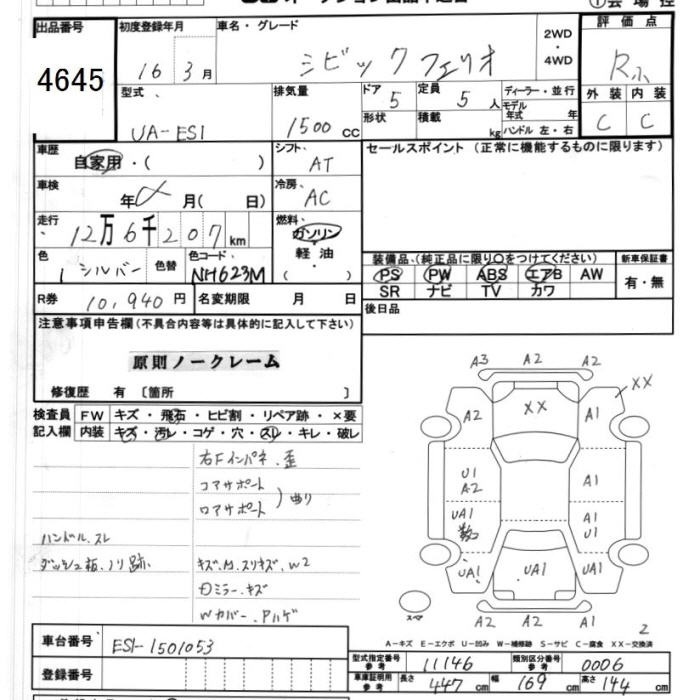 出品番号
4645
初度登録年月
16年 3月
車名・グレード
シビック フェリオ
2WD
・
4WD
評価点
R
外装 内装
C C
型式
UA-ES1
排気量
1500 cc
ドア
5
定員
5人
形状
積載 kg
ディーラー・並行
モデル
年式 年
ハンドル 左・右
車歴
自家用・( )
シフト
AT
セールスポイント (正常に機能するものに限ります)
車検
年 月( 日)
冷房
AC
走行
12万6千207km
燃料
ガソリン
軽油
( )
色
シルバー
色替
色コード
NH623M
装備品、(純正品に限り○をつけてください)
新車保証書
PS PW ABS エアB AW
SR ナビ TV カワ
有・無
R券 10,940円
名変期限 月 日
後日品
注意事項申告欄(不具合内容等は具体的に記入して下さい)
原則ノークレーム
修復歴 有 〔箇所 〕
検査員
記入欄
FW キズ・飛石・ヒビ割・リペア跡・×要
内装 キズ・汚レ・コゲ・穴・スレ・キレ・破レ
右Fインパネ、歪
コアサポート
ロアサポート
曲り
ハンドル、スレ
ダッシュ板、ノリ跡
キズ、凹、スリキズ、W2
ミラー、キズ
Wカバー、Pハゲ
A3 A2 A2
XX
A2 XX A1
U1
A2
A1
UA1
数
A1
U1
UA1 UA1 UA1
スペア
A2 A2 A1
2
A-キズ E-エクボ U-凹み W-補修跡 S-サビ C-腐食 XX-交換済
車台番号
ES1-1501053
登録番号
型式指定番号
参考
11146
類別区分番号
参考
0006
車庫証明用
参考
長さ 447cm
幅 169cm
高さ 144cm